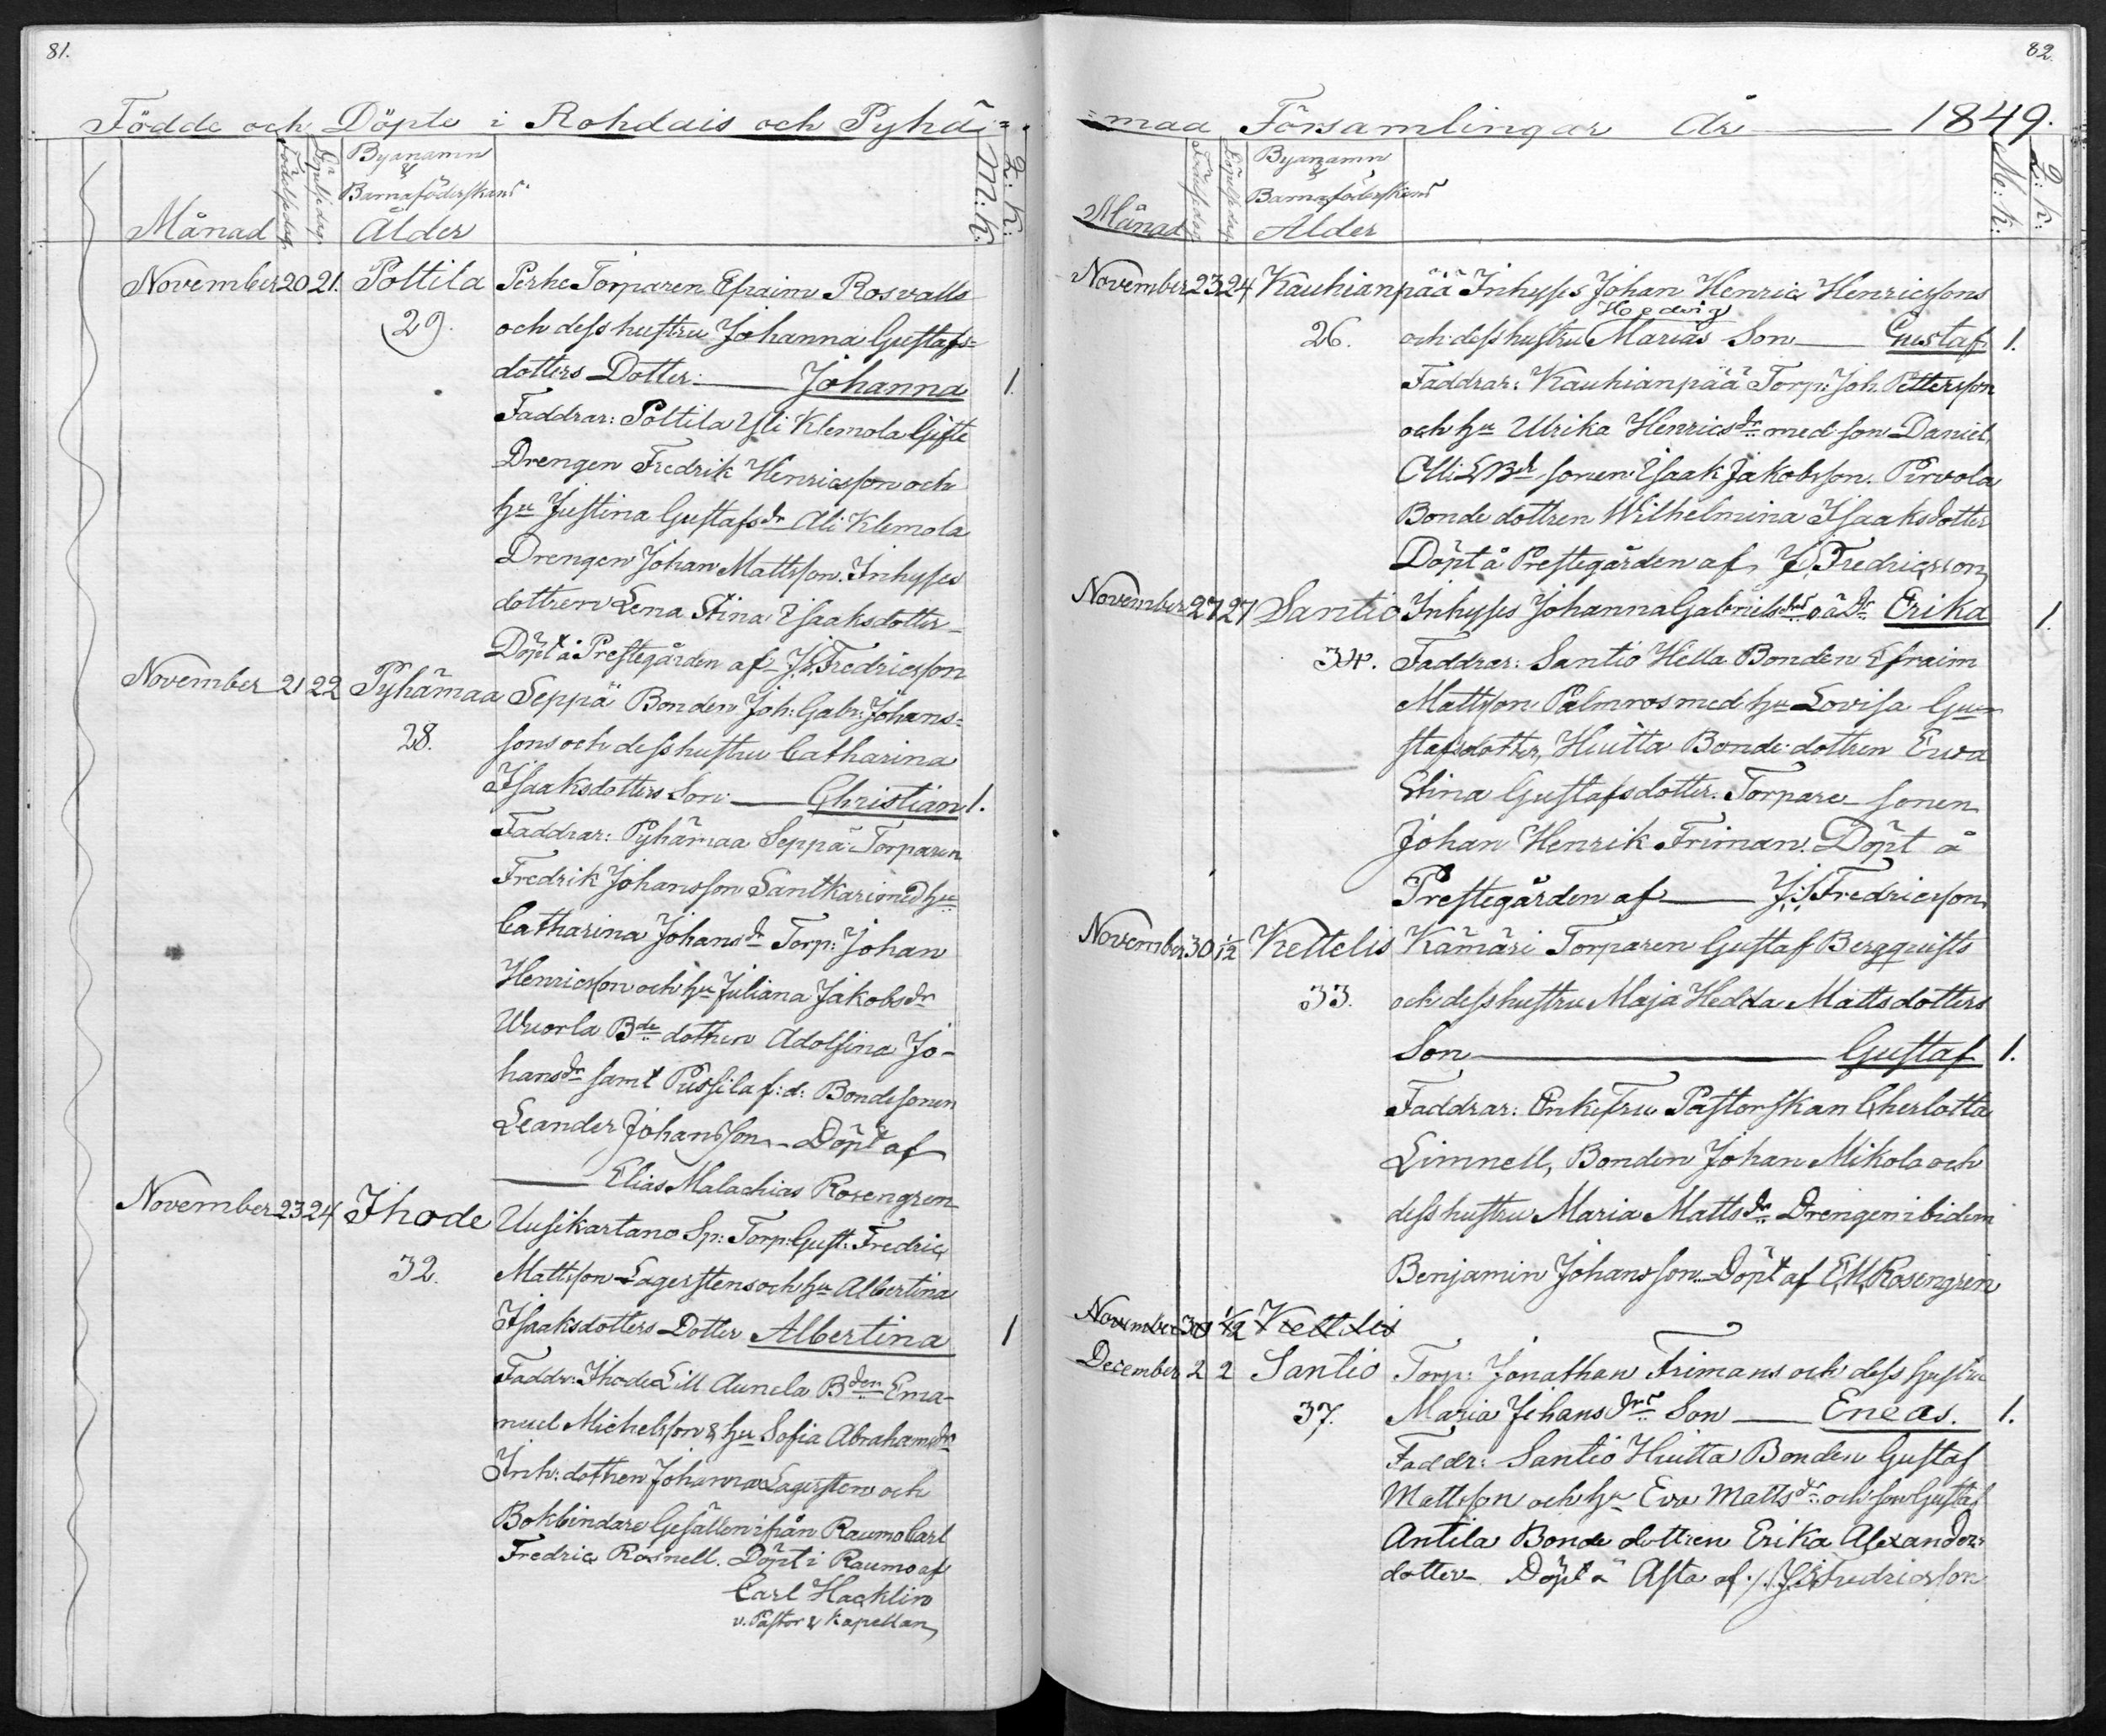 81.
Födde och Döpte i Rohdais och Pyhä=
Månad
Födelsedag.
Döpelsedag.
Byanamn
&
Barnaföderskans
Ålder
M: k.
Q: k:
November 20 21. Pottila Perhe Torparen Efraim Rosvalls
29. och dess hustru Johanna Gustafs=
dotters Dotter: Johanna 1.
Faddrar: Pottila Yli Klemola Gifte
Drengen Fredrik Henricsson och
hu Justina Gustafsdr Ali Klemola
Drengen Johan Mattsson. Inhyses
dottren Lena Stina Isaaksdotter
Döpt å Prestegården af J.S. Fredricsson
November 21 22 Pyhämaa Seppä Bonden Joh: Gabr: Johans=
28. sons och dess hustru Catharina
Isaaksdotters Son: Christian 1.
Faddrar: Pyhämaa Seppä Torparen
Fredrik Johansson Santkari med hu
Catharina Johansdr Torp: Johan
Henricsson och hu Juliana Jakobsdr
Wuorla Bde dottren Adolfina Jo-
hansdr samt Pussila f:d: Bondesonen
Leander Johansson. Döpt af
Elias Malachias Rosengren
November 23 24 Ihode Uusikartano Sp: Torp: Gust: Fredric
32. Mattsson Lagerstens och hu Albertina
Isaaksdotters Dotter Albertina 1
Faddr: Ihode Lill Aunela Bden Ema-
nuel Michelsson & hu Sofia Abrahamsdr
Inh: dottren Johanna Lagersten och
Bokbindare Gesällen ifrån Raumo Carl
Fredric Rosnell. Döpt i Raumo af
Carl Hacklin
v. Pastor & Kapellan
82.
=maa Församlingar År 1849.
Månad
Födelsedag
Döpelsedag
Byanamn
&
Barnaföderskans
Ålder
M: k:
Q: k:
November 23 24 Kauhianpää Inhyses Johan Henric Henricssons
Hedvig
26. och dess hustru Marias Son Gustaf 1.
Faddrar: Kauhianpää Torp: Joh. Pettersson
och hu Ulrika Henricsdr med son Daniel,
Bd sonen Isaak Jakobsson. Pirvola
Bonde dottren Wilhelmina Isaaksdotter
Döpt å Prestegården af J. Fredricsson
November 27 27 Santio Inhyses Johanna Gabrielsdrs o ä Dr Erika 1.
34. Faddrar: Santio Hella Bonden Efraim
Mattsson Palmros med hu Lovisa Gu-
stafsdotter, Huitta Bonde dottren Ewa
Stina Gustafsdotter. Torpare sonen
Johan Henrik Friman. Döpt å
Prestegården af J.S. Fredricsson
November 30 1/12 Kettelis Kämäri Torparen Gustaf Bergquists
33. och dess hustru Maja Hedda Mattsdotters
Son Gustaf 1.
Faddrar: Enkefru Pastorskan Cherlotta
Limnell, Bonden Johan Mikola och
dess hustru Maria Mattsdr Drengen ibidem
Benjamin Johansson. Döpt af E.M. Rosengren
November 30 1/12 Kettelis
December 2 2 Santio Torp: Jonathan Frimans och dess hustru
37. Maria Johansdrs Son Eneas. 1.
Faddr: Santio Huitta Bonden Gustaf
Mattsson och hu Eva Mattsdr och son Gustaf
Antila Bonde dottren Erika Alexanders
dotter. Döpt å Asta af J.S. Fredricsson